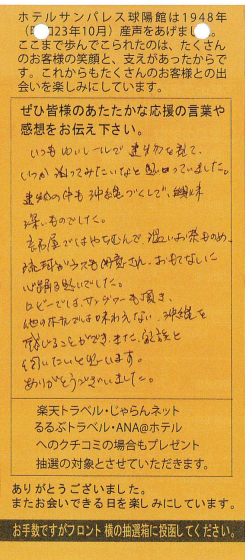 ホテルサンパレス球陽館は1948年
(23年10月)産声をあげました。
ここまで歩んでこられたのは、たくさん
のお客様の笑顔と、支えがあったからで
す。これからもたくさんのお客様との出
会いを楽しみにしています。
ぜひ皆様のあたたかな応援の言葉や
感想をお伝え下さい。
いつもゆいレールで建物を見て、
いつか泊ってみたいなと思っていました。
建物の中も沖縄づくしで、興味
深いものでした。
お部屋ではやちむんで、温かいお茶ものめ、
琉球ガラスも用意され、おもてなしに
心踊る思いでした。
ロビーでは、サンダーも頂き、
他のホテルでは味わえない沖縄を
感じることができ、また、家族と
伺いたいと思います。
ありがとうございました。
楽天トラベル・じゃらんネット
るるぶトラベル・ANA@ホテル
へのクチコミの場合もプレゼント
抽選の対象とさせていただきます。
ありがとうございました。
またお会いできる日を楽しみにしています。
お手数ですがフロント横の抽選箱に投函してください。